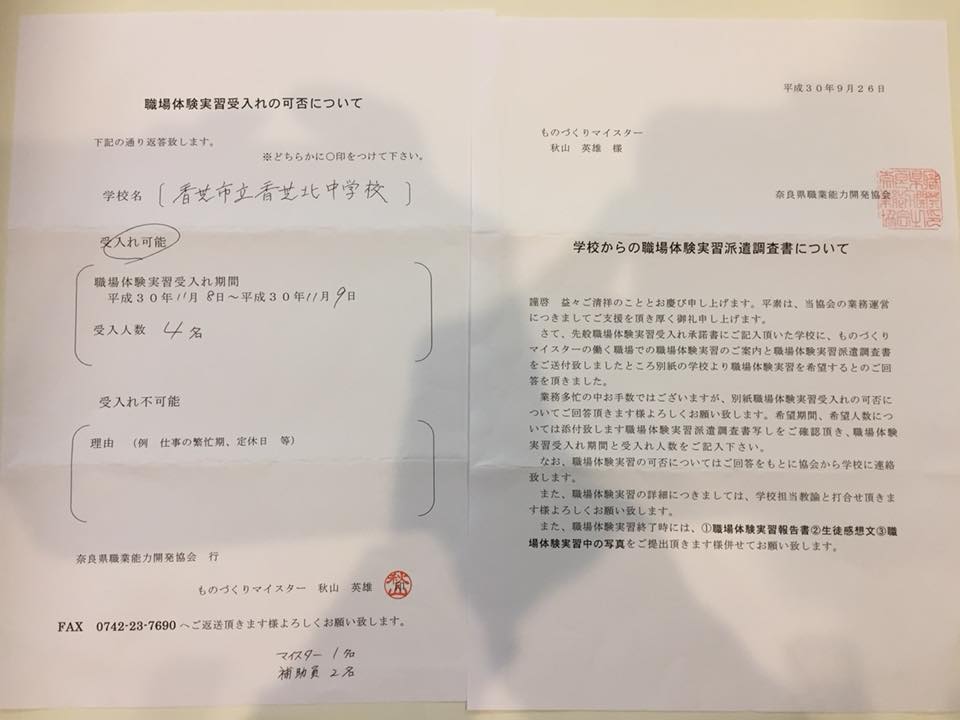 職場体験実習受入れの可否について
下記の通り返答致します。
※どちらかに○印をつけて下さい。
学校名 〔 香芝市立香芝北中学校 〕
受入れ可能
職場体験実習受入れ期間
平成30年11月8日～平成30年11月9日
受入人数 4名
受入れ不可能
理由 （例 仕事の繁忙期、定休日 等）
奈良県職業能力開発協会 行
ものづくりマイスター 秋山 英雄
FAX 0742-23-7690 へご返送頂きます様よろしくお願い致します。
マイスター 1名
補助員 2名
平成30年9月26日
ものづくりマイスター
秋山 英雄 様
奈良県職業能力開発協会
学校からの職場体験実習派遣調査書について
謹啓 益々ご清祥のこととお慶び申し上げます。平素は、当協会の業務運営
につきましてご支援を頂き厚く御礼申し上げます。
さて、先般職場体験実習受入れ承諾書にご記入頂いた学校に、ものづくり
マイスターの働く職場での職場体験実習のご案内と職場体験実習派遣調査書
をご送付致しましたところ別紙の学校より職場体験実習を希望するとのご回
答を頂きました。
業務多忙の中お手数ではございますが、別紙職場体験実習受入れの可否に
ついてご回答頂きます様よろしくお願い致します。希望期間、希望人数につい
ては添付致します職場体験実習派遣調査書写しをご確認頂き、職場体験
実習受入れ期間と受入れ人数をご記入下さい。
なお、職場体験実習の可否についてはご回答をもとに協会から学校に連絡
致します。
また、職場体験実習の詳細につきましては、学校担当教諭と打合せ頂きま
す様よろしくお願い致します。
また、職場体験実習終了時には、①職場体験実習報告書②生徒感想文③職
場体験実習中の写真をご提出頂きます様併せてお願い致します。